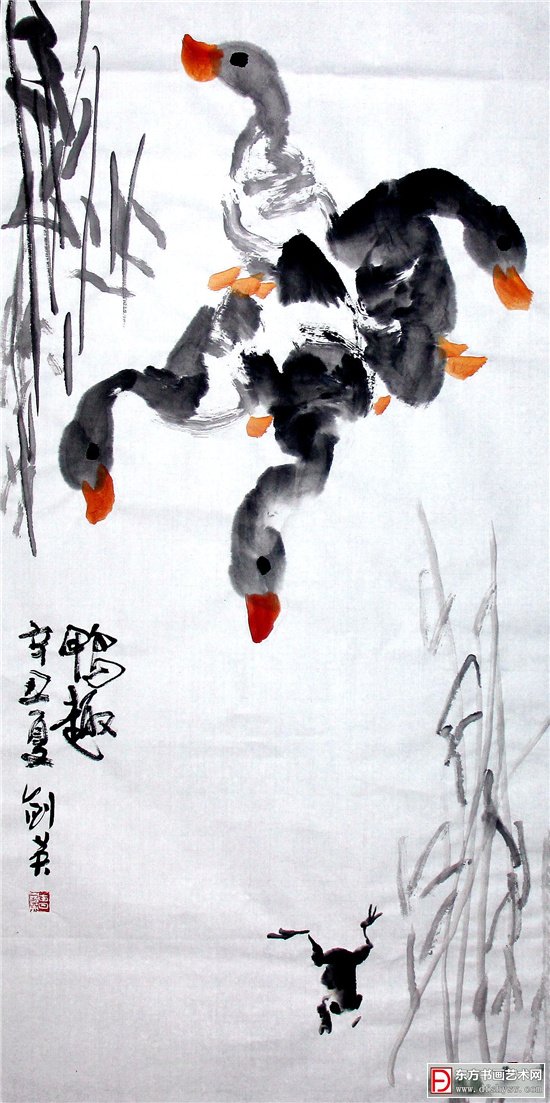 鸭趣
辛丑夏 剑英
东方书画艺术网
www.dfshysw.com